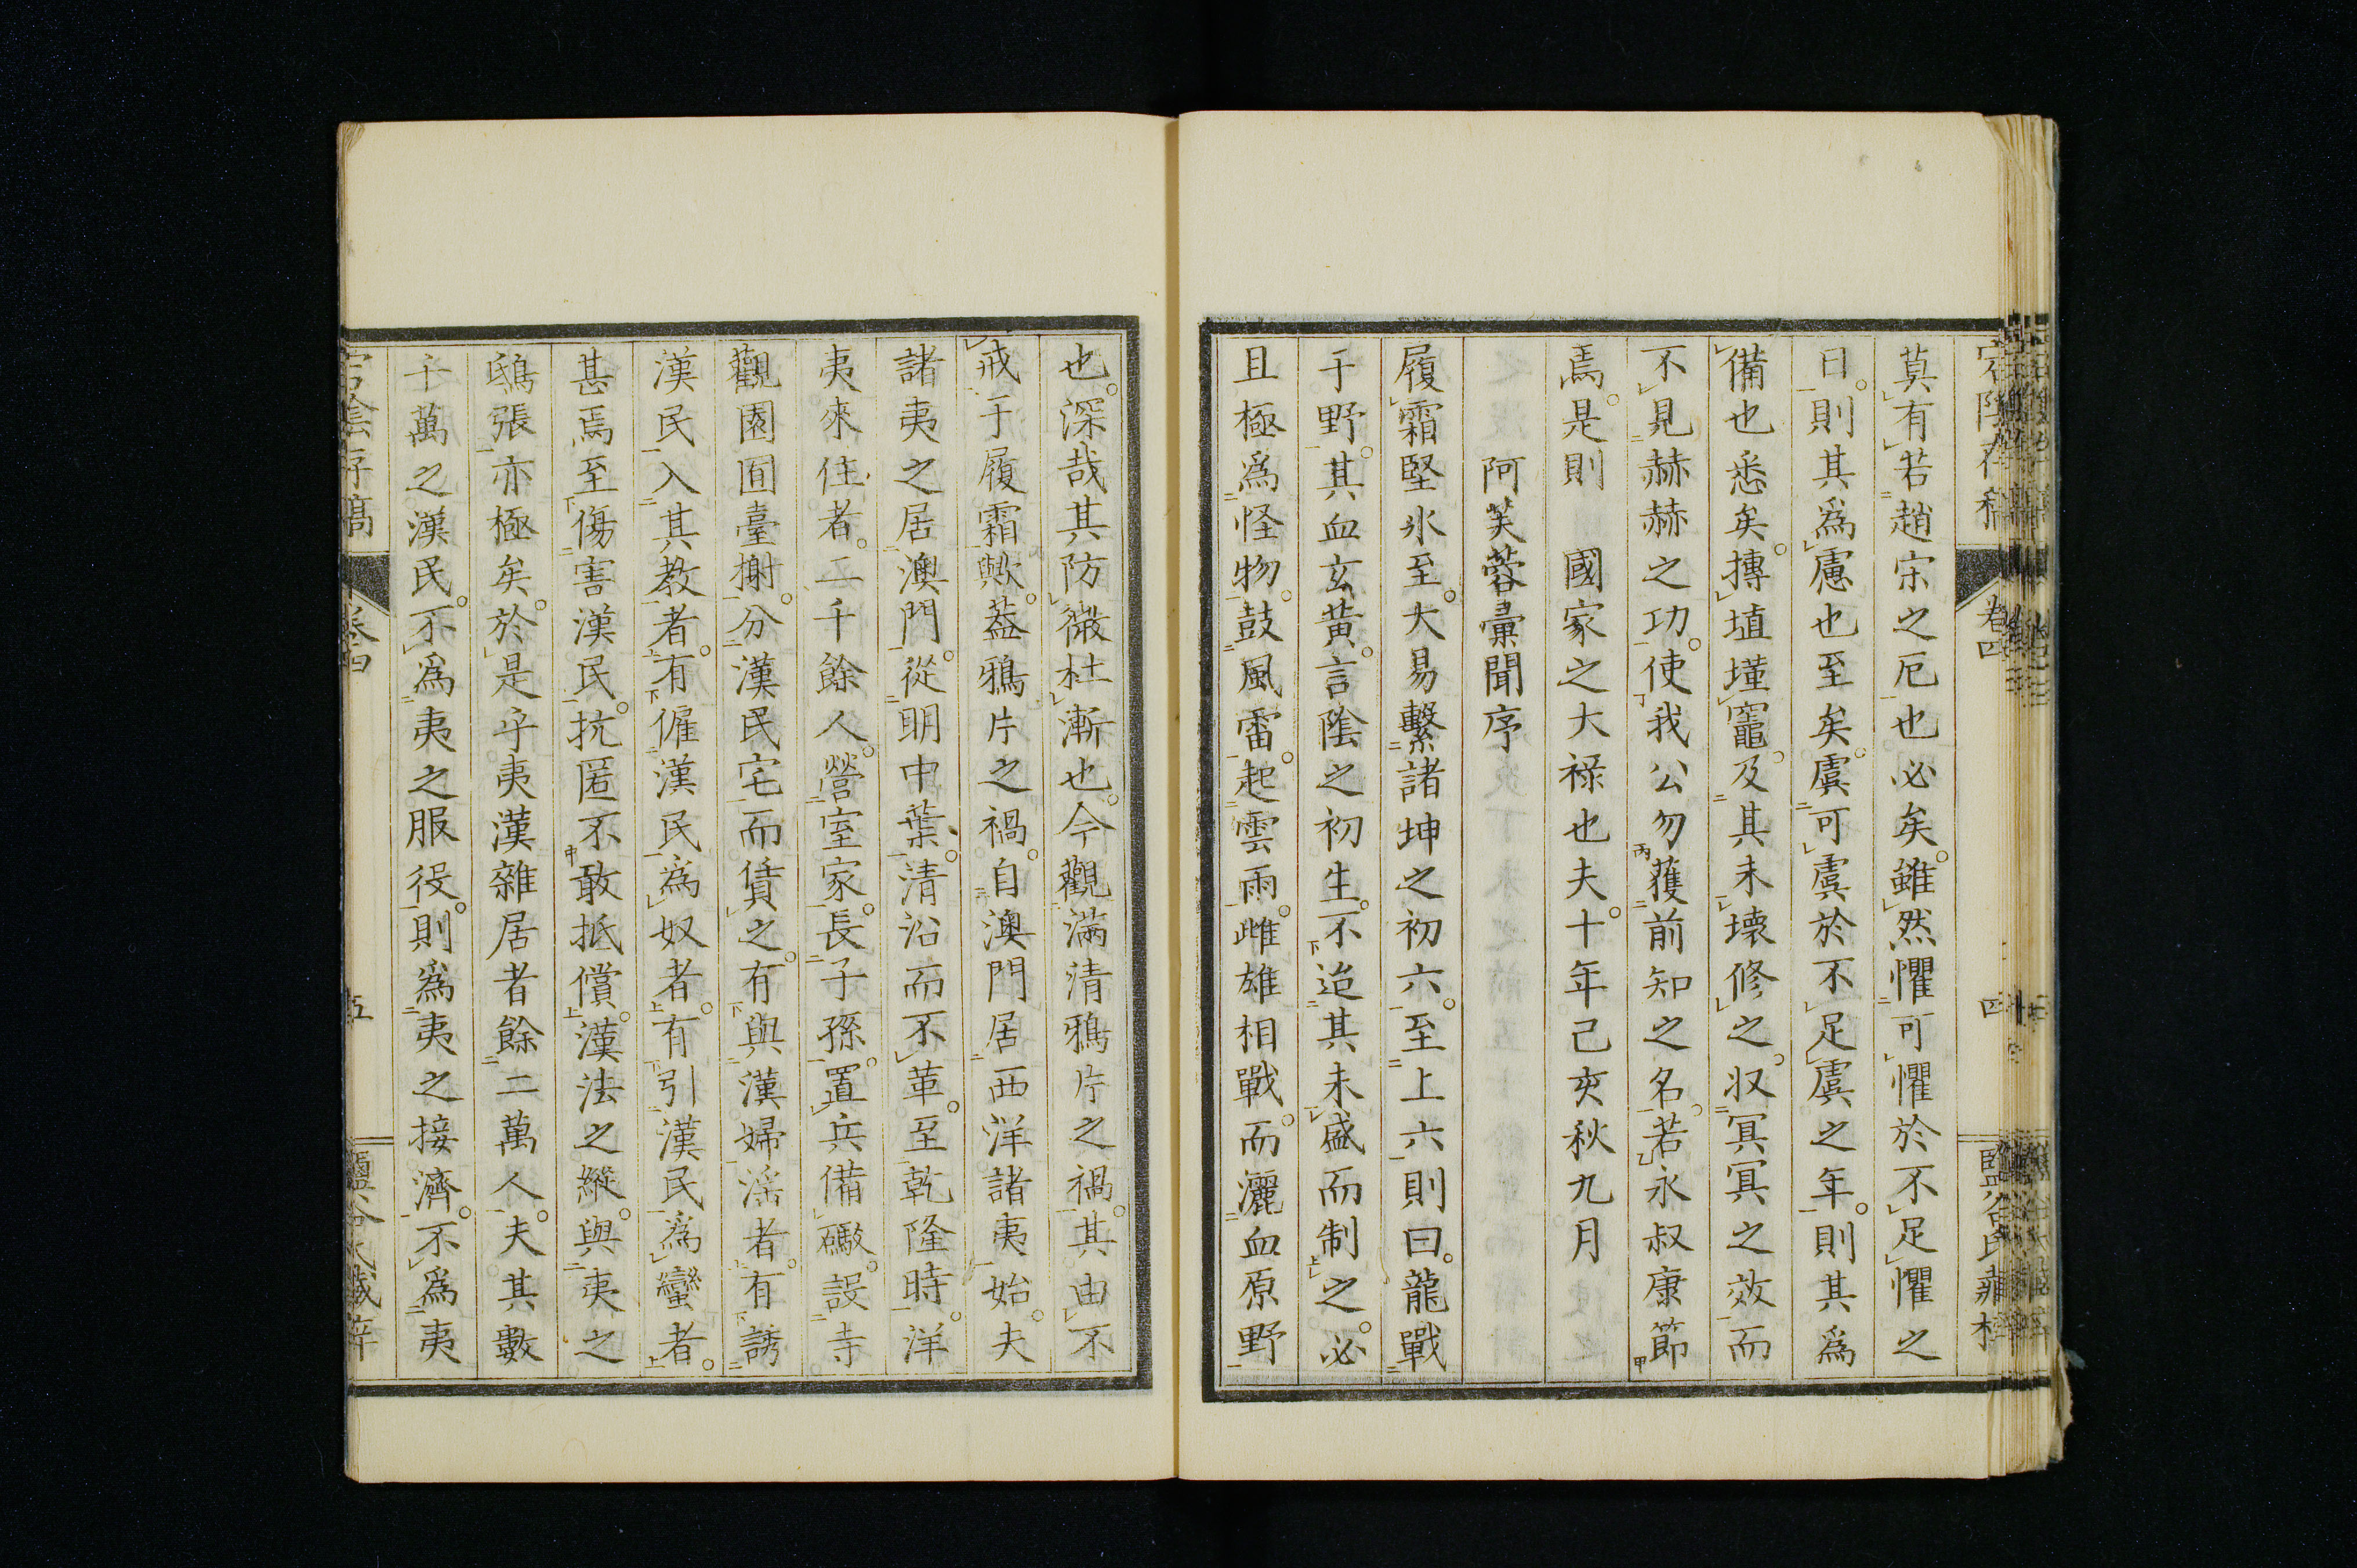 莫有若趙宋之厄也必矣。雖然懼可懼於不足懼之
日。則其為慮也至矣。虞可虞於不足虞之年。則其為
備也悉矣。摶埴墐竈。及其未壞修之。収冥冥之效而
不見赫赫之功。使我公勿獲前知之名。若永叔康節
焉。是則　國家之大祿也夫。十年己亥秋九月
阿芙蓉彙聞序
履霜堅氷至。大易繫諸坤之初六。至上六則曰。龍戰
于野。其血玄黃。言陰之初生。不迨其未盛而制之。必
且極為怪物。鼓風雷。起雲雨。雌雄相戰。而灑血原野
也。深哉其防微杜漸也。今觀滿清鴉片之禍。其由不
戒于履霜歟。蓋鴉片之禍。自澳門居西洋諸夷始。夫
諸夷之居澳門。從明中葉。清沿而不革。至乾隆時。洋
夷來住者。二千餘人。營室家。長子孫。置兵備礮。設寺
觀園囿臺榭。分漢民宅而賃之。有與漢婦淫者。有誘
漢民入其教者。有僱漢民為奴者。有引漢民為蠻者。
甚焉至傷害漢民。抗匿不敢抵償。漢法之縱。與夷之
鴟張亦極矣。於是乎夷漢雜居者餘二萬人。夫其數
千萬之漢民。不為夷之服役。則為夷之接濟。不為夷
卷四
四
五